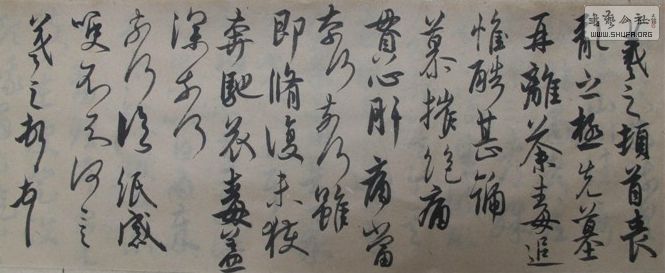 羲之頓首喪
亂之極先墓
再離荼毒追
惟酷甚號
慕摧絕痛
貫心肝痛當
奈何奈何雖
即脩復未獲
奔馳哀毒益
深奈何
奈何臨紙感
哽不知何言
羲之頓首
書藝公社
WWW.SHUFA.ORG